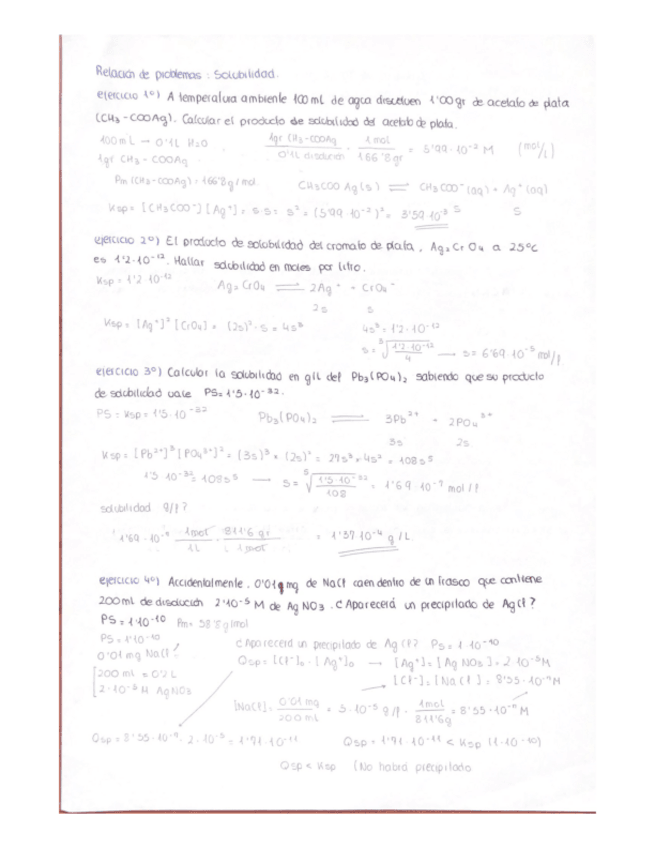 Relación de problemas : Solubilidad.
ejercicio 1º) A temperatura ambiente 100 ml de agua disuelven 1'00gr de acetato de plata
(CH3-COOAg). Calcular el producto de solubilidad del acetato de plata.
100mL → 0'1L H2O 1gr CH3-COOAg / 0'1L disolución · 1mol / 166'8gr = 5'99·10⁻² M (mol/L)
1gr CH3-COOAg
Pm (CH3-COOAg) = 166'8g/mol. CH3COOAg(s) ⇌ CH3COO⁻(aq) + Ag⁺(aq)
Ksp = [CH3COO⁻][Ag⁺] = s·s = s² = (5'99·10⁻²)² = 3'59·10⁻³ S S
ejercicio 2º) El producto de solubilidad del cromato de plata, Ag2CrO4 a 25ºC
es 1'2·10⁻¹². Hallar solubilidad en moles por litro.
Ksp = 1'2·10⁻¹² Ag2CrO4 ⇌ 2Ag⁺ + CrO4⁻
2s s
Ksp = [Ag⁺]² [CrO4] = (2s)²·s = 4s³ 4s³ = 1'2·10⁻¹²
s = ³√(1'2·10⁻¹² / 4) → s = 6'69·10⁻⁵ mol/l
ejercicio 3º) Calcular la solubilidad en g/L del Pb3(PO4)2 sabiendo que su producto
de solubilidad vale PS = 1'5·10⁻³².
PS = Ksp = 1'5·10⁻³² Pb3(PO4)2 ⇌ 3Pb²⁺ + 2PO4³⁺
3s 2s
Ksp = [Pb²⁺]³ [PO4³⁺]² = (3s)³ × (2s)² = 27s³·4s² = 108s⁵
1'5·10⁻³² = 108s⁵ → s = ⁵√(1'5·10⁻³² / 108) = 1'69·10⁻⁷ mol/l
solubilidad g/l?
1'69·10⁻⁷ 1mol / 1L · 811'6 gr / 1mol = 1'37·10⁻⁴ g/L
ejercicio 4º) Accidentalmente, 0'01 mg de NaCl caen dentro de un frasco que contiene
200ml de disolución 2·10⁻⁵ M de AgNO3. ¿Aparecerá un precipitado de AgCl?
PS = 1·10⁻¹⁰ Pm = 58'8g/mol
PS = 1·10⁻¹⁰ ¿Aparecerá un precipitado de AgCl? PS = 1·10⁻¹⁰
0'01 mg NaCl Qsp = [Cl⁻]₀·[Ag⁺]₀ → [Ag⁺] = [AgNO3] = 2·10⁻⁵M
200mL = 0'2L → [Cl⁻] = [NaCl] = 8'55·10⁻⁷M
2·10⁻⁵ M AgNO3
[NaCl] = 0'01 mg / 200 mL = 5·10⁻⁵ g/l · 1mol / 811'6g = 8'55·10⁻⁷ M
Qsp = 8'55·10⁻⁷·2·10⁻⁵ = 1'71·10⁻¹¹ Qsp = 1'71·10⁻¹¹ < Ksp (1·10⁻¹⁰)
Qsp < Ksp (No habrá precipitado